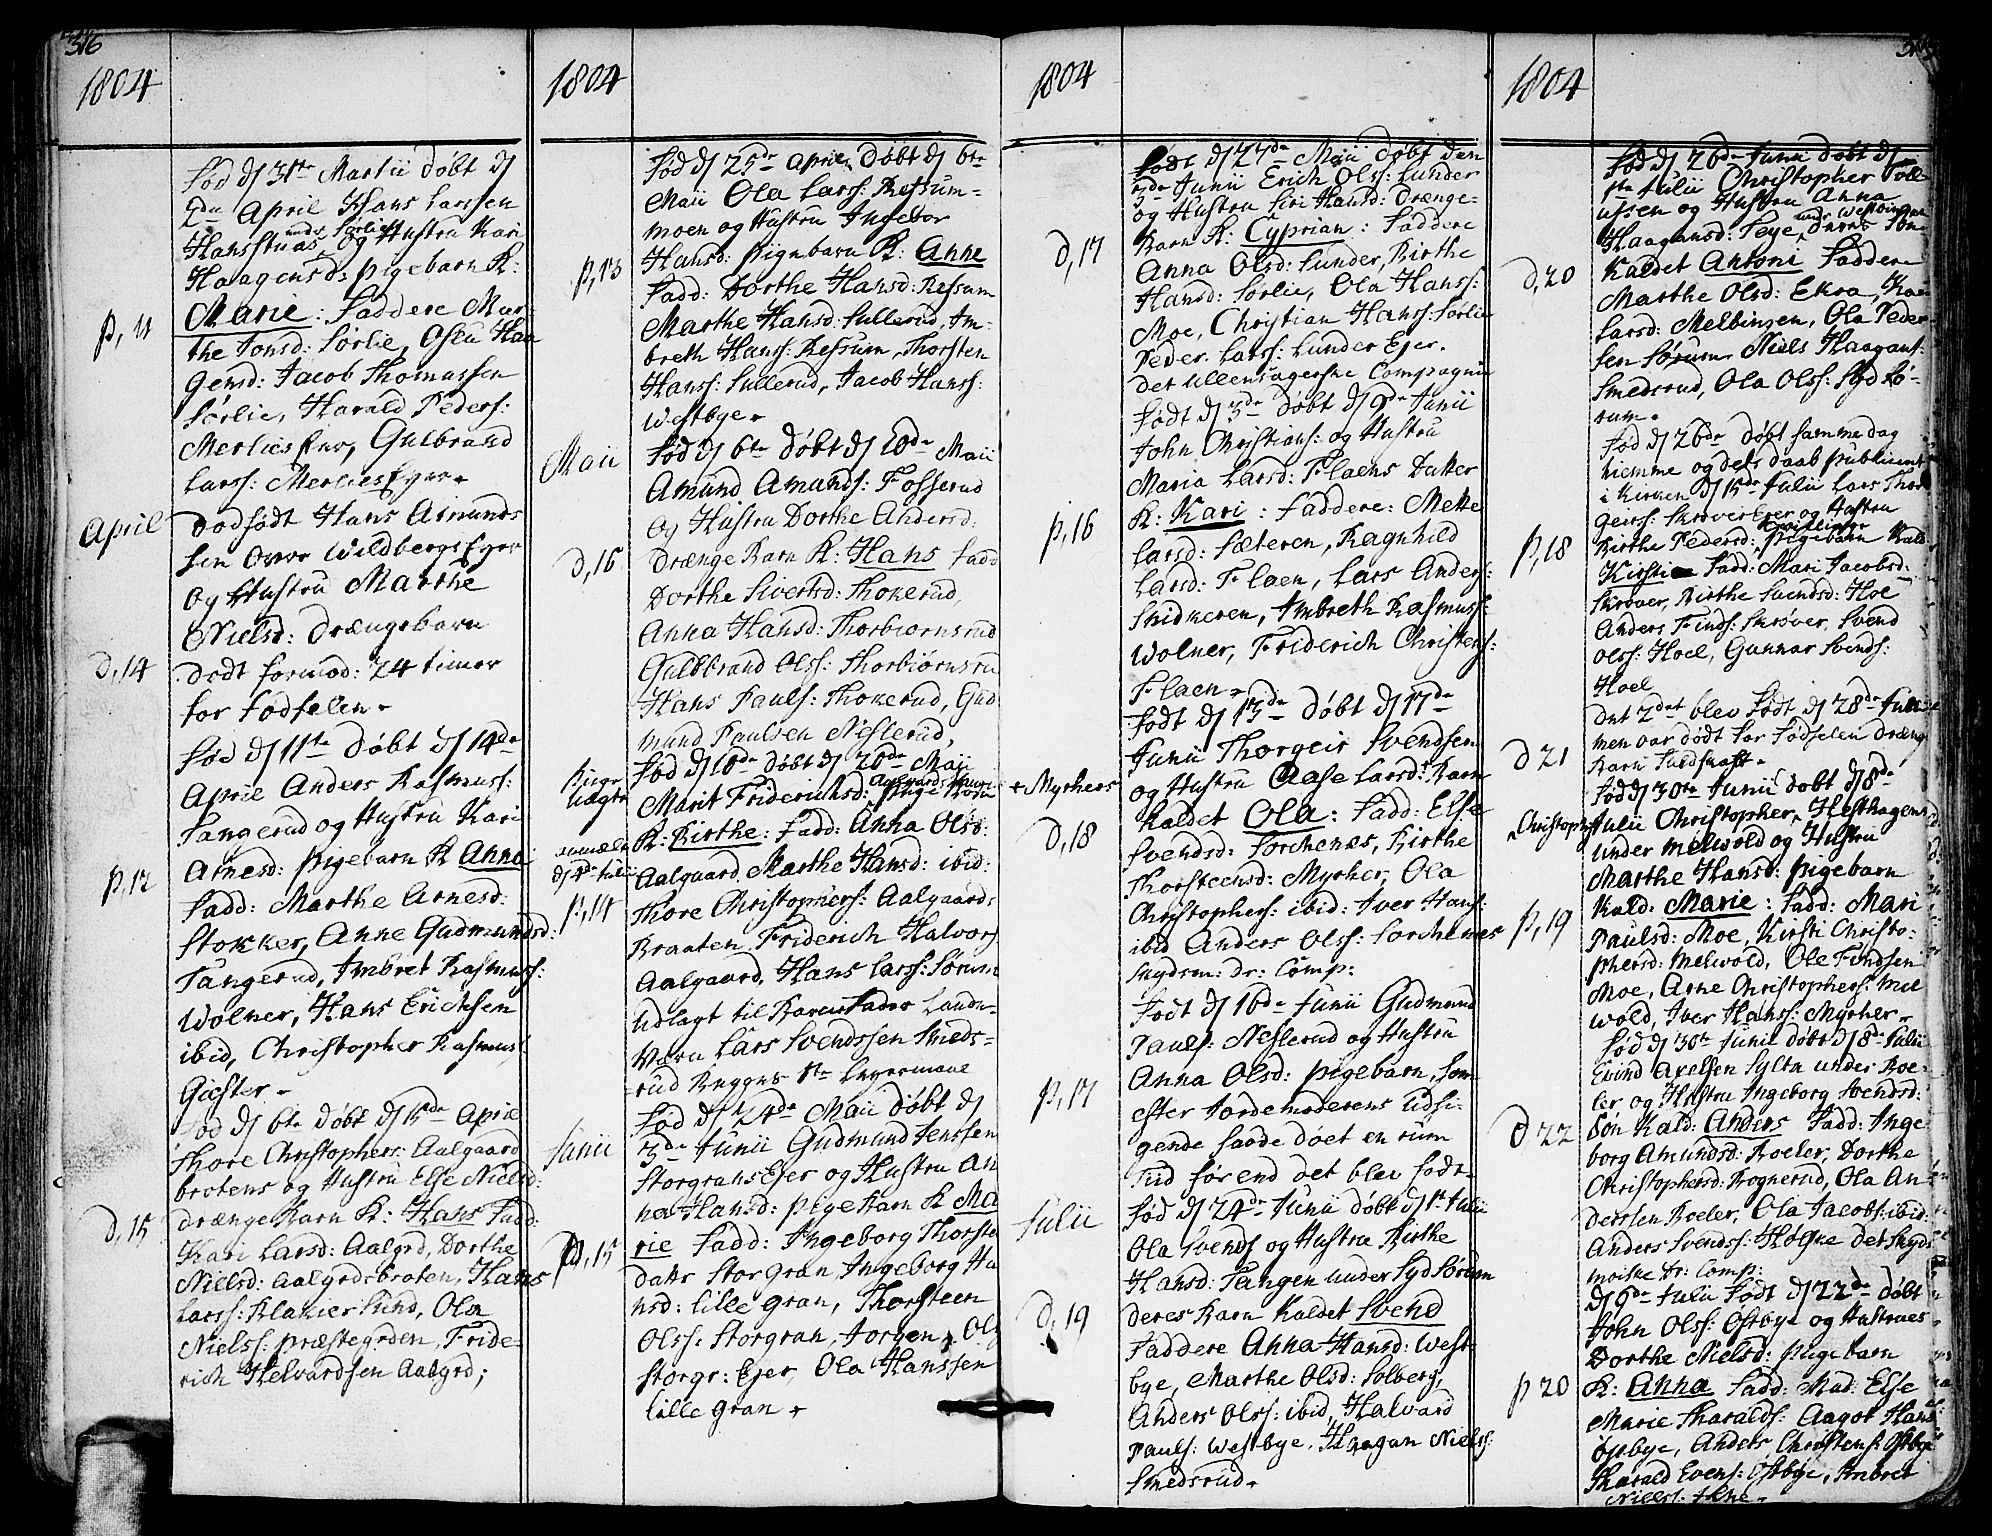 316
1804
Fød d/ 31te Martii døbt d/
2den April Hans Larssen
under Sørlie
Hansstuas og Hustru Kari
Haagensd: pigebarn K:
p, 11
Marie: Faddere Mar-
the Jonsd: Sørlie, Oseu Haa
gensd: Jacob Thomassen
Sørlie, Harald Peders:
Merlies Eyer, Gulbrand
Larss: Merlies Eyer.
April
Dødfødt Hans Amunds
sen Over Wildbergs Eyer
og Hustru Marthe
Nielsd: Drængebarn
d, 14
Dødt formod: 24 timer
før Fødselen.
Fød d/ 11te Døbt d/ 14de
April Anders Rasmuss:
Tangerud og Hustru Kari
p, 12
Arnesd: pigebarn K Anna
Fadd: Marthe Arnesd:
Stokker, Anne Gudmundsd:
Tangerud, Imbret Rasmuss:
Wolner, Hans Erichsen
ibid, Christopher Rasmuss:
Giester.
Fød d/ 6te Døbt d/ 15de April
Thore Christophers: Aalgaard
brotens og Hustru Else Nielsd:
d, 15
drænge Barn K: Hans Fadd:
Kari Larsd: Aalgrd, Dorthe
Nielsd: Aalgrdsbroten, Hans
Larss: Klaxier Lund, Ola
Nielss: præstegrden, Fride-
rich Helvardsen Aalgrd;
1804
Fød d/ 25de April Døbt d/ 6te
Maii Ola Larss: Ressum-
moen og Hustru Ingebor
p, 13
Hansd: pigebarn K: Anne
Fadd: Dorthe Hansd: Ressum
Marthe Hansd: Sullerud, Im-
breth Hanss: Ressum, Thorsten
Hanss: Sullerud, Jacob Hanss:
Westbye.
Maii
Fød d/ 6te Døbt d/ 10de Maii
Amund Amunds: Fosserud
og Hustru Dorthe Andersd:
d, 16
Drænge Barn K: Hans Fadd
Dorthe Sivertsd: Thokerud,
Anna Hansd: Thorbiørnsrud
Guldbrand Olss: Thorbiørnsru
Hans Pauls: Thokerud, Gud
mund Paulsen Neslerud,
Fød d/ 10de døbt d/ 20de Maii
Aalgaards
Marit Friderichsd: pige Barn
K: Birthe: Fadd: Anna Olsd:
d/ 4de Julii
Aalgaard, Marthe Hansd: ibid:
p, 14
Thore Christophers: Aalgaards
Braaten, Friderich Halvors
Aalgaard, Hans Larss: Sørum
Udlagt til Barnefader Landu-
Værn Lars Svendssen Smeds-
rud Begges 1te Leyermaal
Junii
Fød d/ 24de Maii døbt d/
3de Junii Gudmund Jenssen
Storgrans Ejer og Hustru An
na Hansd: pige Barn K Ma
p, 15
rie Fadd: Ingeborg Thorste
datr Stor Gran, Ingeborg Ha
nsd: Lille gran, Thorsteen
Olss: Storgran, Jørgen Ols
Storgr: Ejer, Ola Hanssen
Lille gran.
1804
Født d/ 27de Maii døbt den
3de Junii Erich Olss: Lunder
og Hustru Siri Hansd: Drænge-
d, 17
Barn K: Cyprian: Faddere
Anna Olsd: Lunder, Birthe
Hansd: Sørlie, Ola Hanss:
Moe, Christian Hanss: Sørlie
Peder Larss: Lunder Ejer.
det Ullensagerske Compagnie
Født d/ 3de døbt d/ 9de Junii
John Christians: og Hustru
Maria Larsd: Flaens Datter
p, 16
K: Kari: Faddere: Mette
Larsd: Sæteren, Ragnhild
Larsd: Flaen, Lars Anders:
Snidkeren, Imbreth Rasmuss:
Wolner, Friderich Christens:
Flaen.
Født d/ 13de Døbt d/ 17de
Junii Thorgeir Svendsen
+ Myrhers
og Hustru Aase Larsd: Barn
d, 18
Kaldet Ola: Fadd: Else
Svendsd: Sorchenæs, Birthe
Thorsteensd: Myrher, Ola
Christophers: ibid: Iver Hans:
ibid Anders Olss: Sorchenæs
Suydsm: Dr: Comp:
Født d/ 16de Junii Gudmund
Pauls: Neslerud og Hustru
p, 17
Anna Olsd: pigebarn, som
efter Jordemoderens Udsi-
gende havde døet en rum
Tiid før end det blev født.
Julii
Fød d/ 24de Junii døbt d/ 1te Julii
Ola Svends og Hustru Birthe
Hansd: Tangen under Syd Sørum
d, 19
deres Barn Kaldet Svend
Faddere Anna Hansd: West
bye, Marthe Olsd: Solberg,
Anders Olss: ibid, Halvard
Pauls: Westbye, Haagan Nielss:
Smedsrud.
1804
Fød d/ 26de Junii Døbt d/
1te Julii Christopher Poll-
ussen og Hustru Anna
Haagansd: Teye, deres Søn
d, 20
Kaldet Antoni Faddere
Marthe Olsd: Ekra, Kar
Larsd: Melbinzen, Ola Peder-
sen Sørum Niels Haagans:
Smedsrud, Ola Olss: Syd Sø-
rum.
Fød d/ 26de døbt samme dag
hiemme og dets daab publiceret
i Kirken d/ 15de Julii Lars Thor
geirs: Skrøver Ejer og Hustru
Tvillinger
p, 18
Birthe Pedersd: pigebarn Kald
Kirsti Fadd: Mari Jacobsd:
Skrøver, Birthe Svendsd: Hoe
Anders Finds: Skrøver, Svend
Olss: Hoel, Gunnar Svends:
Hoel
Det 2det blev Født d/ 28de Junii
men var dødt før Fødselen dræng
d 21
Barn Fuldskabt.
Fød d/ 30te Junii døbt d/ 8de
Christophers
Julii Christopher, Hesthagens
under Melwold og Hustru
Marthe Hansd: pigebarn
p, 19
Kald: Marie: Fadd: Mari
Paulsd: Moe, Kirsti Christo-
phersd: Melwold, Ole Findsen
Moe, Arne Christophers: Mel
wold, Iver Hanss: Myrher.
Fød d/ 30te Junii døbt d/ 8de Julii
Evind Axelsen Sylta under Roe-
ler og Hustru Ingeborg Svendsd:
d 22
Søn Kald: Anders Fadd: Inge
borg Amundsd: Roeler, Dorthe
Christophersd: Rognerud, Ola An-
derssen Roeler, Ola Jacobs: ibid:
Anders Svendss: Holske det Suyds
moiske Dr: Comp:
d/ 9de Julii Født d/ 22de døbt
John Olss: Østbye og Hustrues
Dorthe Nielsd: pigebarn
p 20
K: Anna Fadd: Mad: Else
Marie Tharalds: Aagot Hans
Østbye, Anders Christens: Østbye
Tharald Evens: Østbye, Imbret
Nielss: